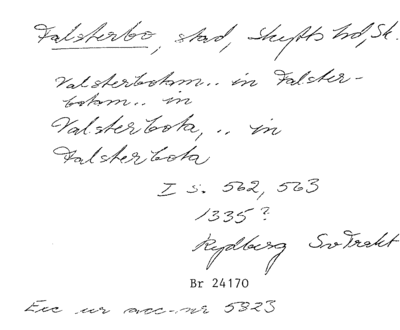 Falsterbo, stad, Skytts hd, Sk.
Valsterbotam.. in Falster-
botam.. in
Valsterbota, .. in
Falsterbota
I s. 562, 563
1335?
Rydberg Sv Trakt
Br 24170
Exc ur acc-nr 5923